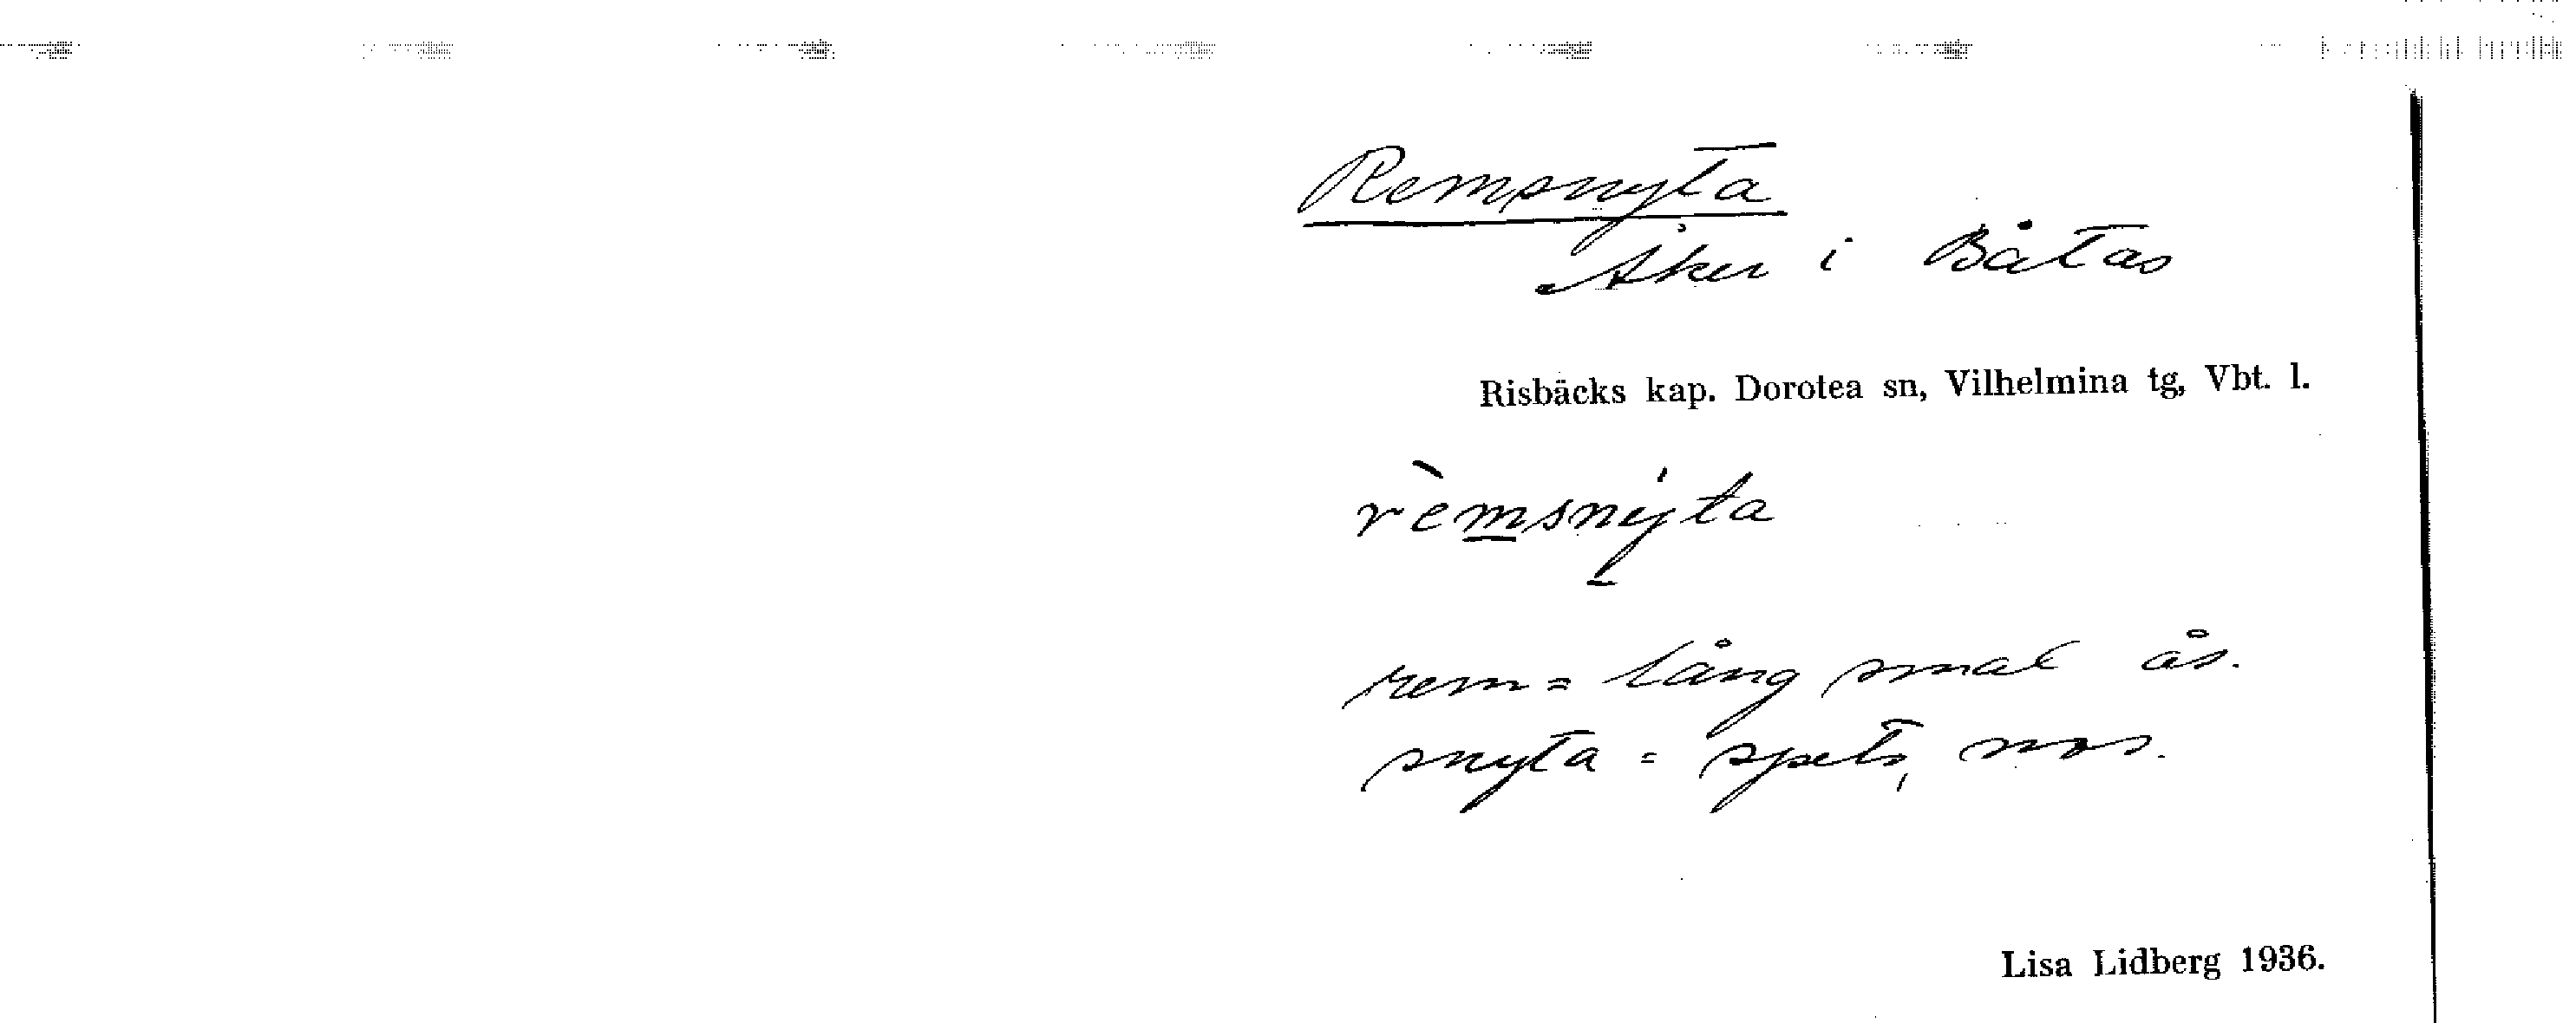 Remsnyta
Åker i Båtas
Risbäcks kap. Dorotea sn, Vilhelmina tg, Vbt. l.
rèmsnýta
rem = lång smal ås.
snyta = spets, nos.
Lisa Lidberg 1936.